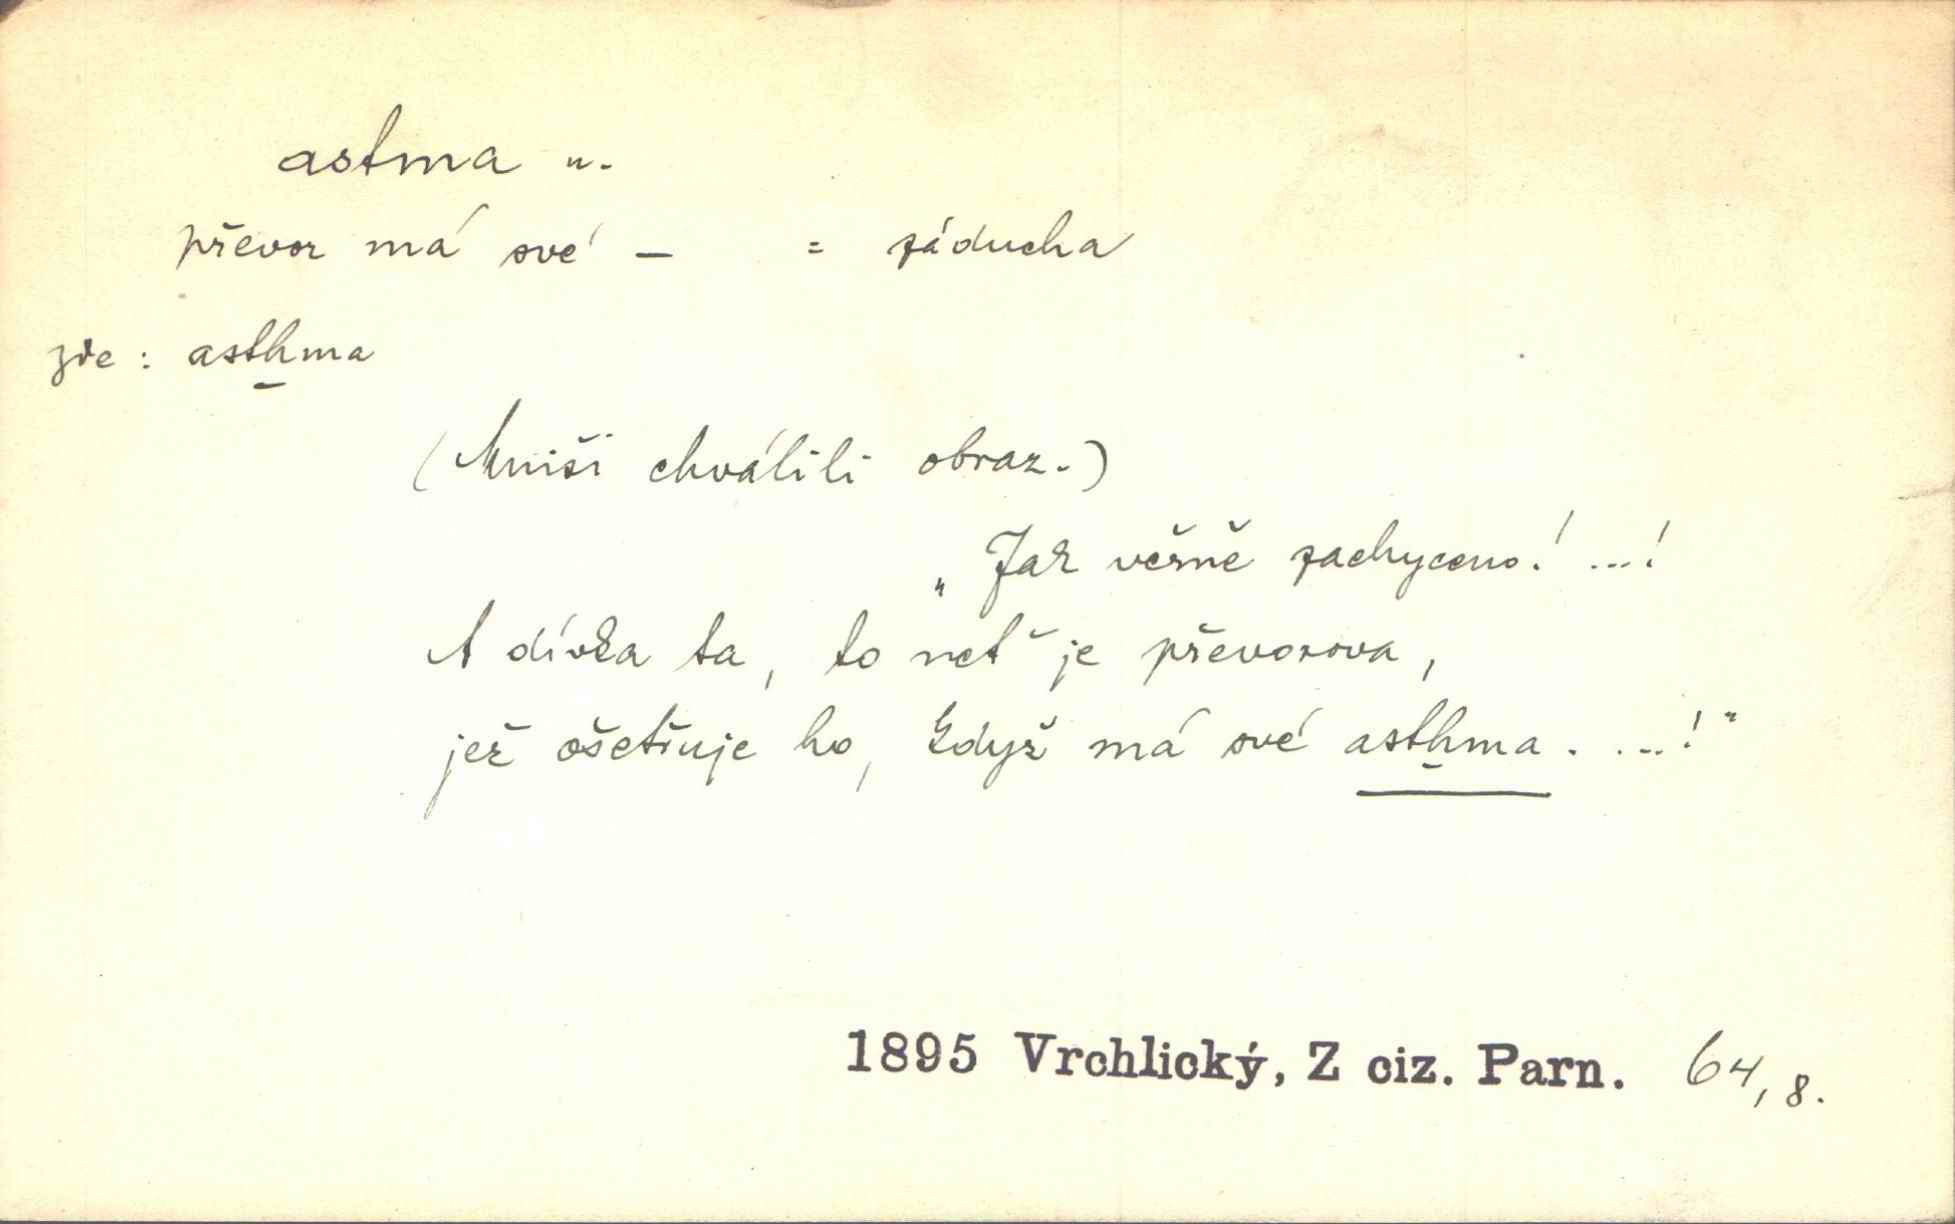 astma n.
převor má své – = záducha
zde: asthma
(Mniši chválili obraz.)
„Jak věrně zachyceno! ...!
A dívka ta, to neť je převorova,
jež ošetřuje ho, když má své asthma. ...!"
1895 Vrchlický, Z ciz. Parn. 64, 8.